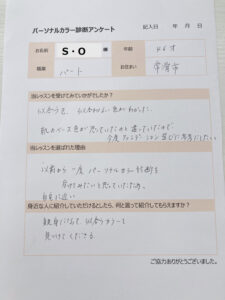 パーソナルカラー診断アンケート
記入日 年 月 日
お名前 S・O 様 年齢 46才
職業 パート お住まい 常滑市
当レッスンを受けてみていかがでしたか?
似合う色、似合わない色がわかった。
肌のベース色が思っていたのと違っていたので
今度ファンデーション選びに
当レッスンを選ばれた理由
以前から一度パーソナルカラー診断を
受けてみたいと思っていたため。
自宅に近い
身近な人に紹介していただけるとしたら、何と言って紹介してもらえますか?
親身になって、似合うカラーを
見つけてくださる。
ご協力ありがとうございました。